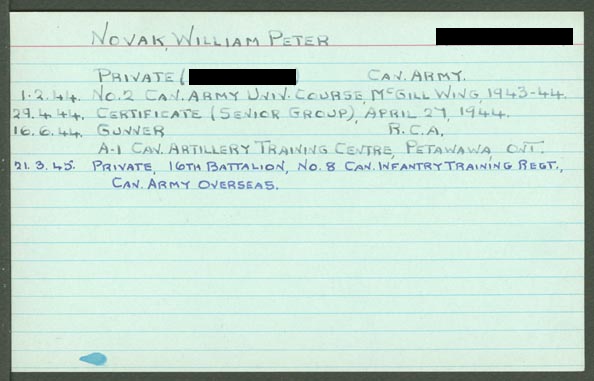 NOVAK, WILLIAM PETER
PRIVATE ( ) CAN. ARMY.
1.2.44. NO.2 CAN. ARMY UNIV. COURSE, MCGILL WING, 1943-44.
29.4.44. CERTIFICATE (SENIOR GROUP), APRIL 27, 1944.
16.6.44. GUNNER R.C.A.
A-1 CAN. ARTILLERY TRAINING CENTRE, PETAWAWA, ONT.
21.3.45. PRIVATE, 16TH BATTALION, NO. 8 CAN. INFANTRY TRAINING REGT.,
CAN. ARMY OVERSEAS.